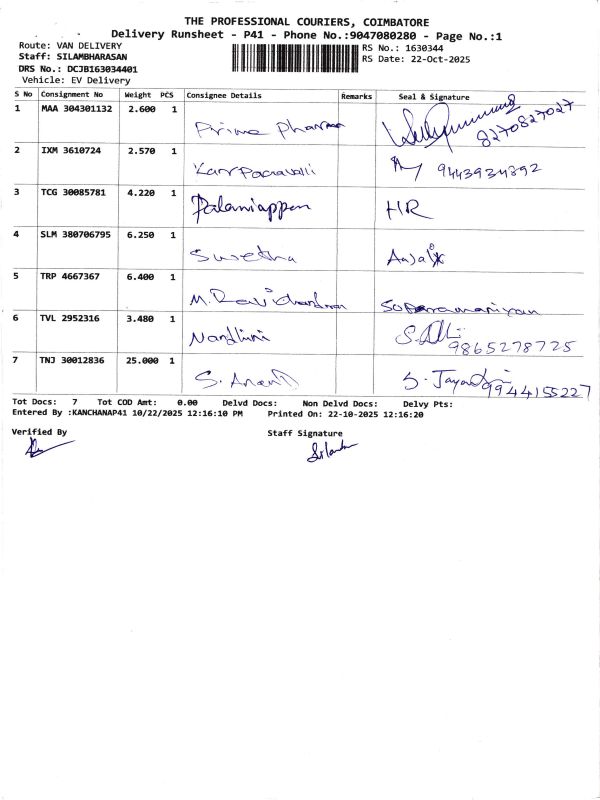 THE PROFESSIONAL COURIERS, COIMBATORE
Delivery Runsheet - P41 - Phone No.:9047080280 - Page No.:1
Route: VAN DELIVERY
Staff: SILAMBHARASAN
DRS No.: DCJB163034401
Vehicle: EV Delivery
RS No.: 1630344
RS Date: 22-Oct-2025
S No Consignment No Weight PCS Consignee Details Remarks Seal & Signature
1 MAA 304301132 2.600 1 Prime Pharma 8270827027
2 IXM 3610724 2.570 1 9443934892
3 TCG 30085781 4.220 1 Palaniappan HR
4 SLM 380706795 6.250 1 Swetha
5 TRP 4667367 6.400 1 M. Ravichandran
6 TVL 2952316 3.480 1 Nandhini 9865278725
7 TNJ 30012836 25.000 1 S. Anand 9944155227
Tot Docs: 7 Tot COD Amt: 0.00 Delvd Docs: Non Delvd Docs: Delvy Pts:
Entered By :KANCHANAP41 10/22/2025 12:16:10 PM Printed On: 22-10-2025 12:16:20
Verified By Staff Signature